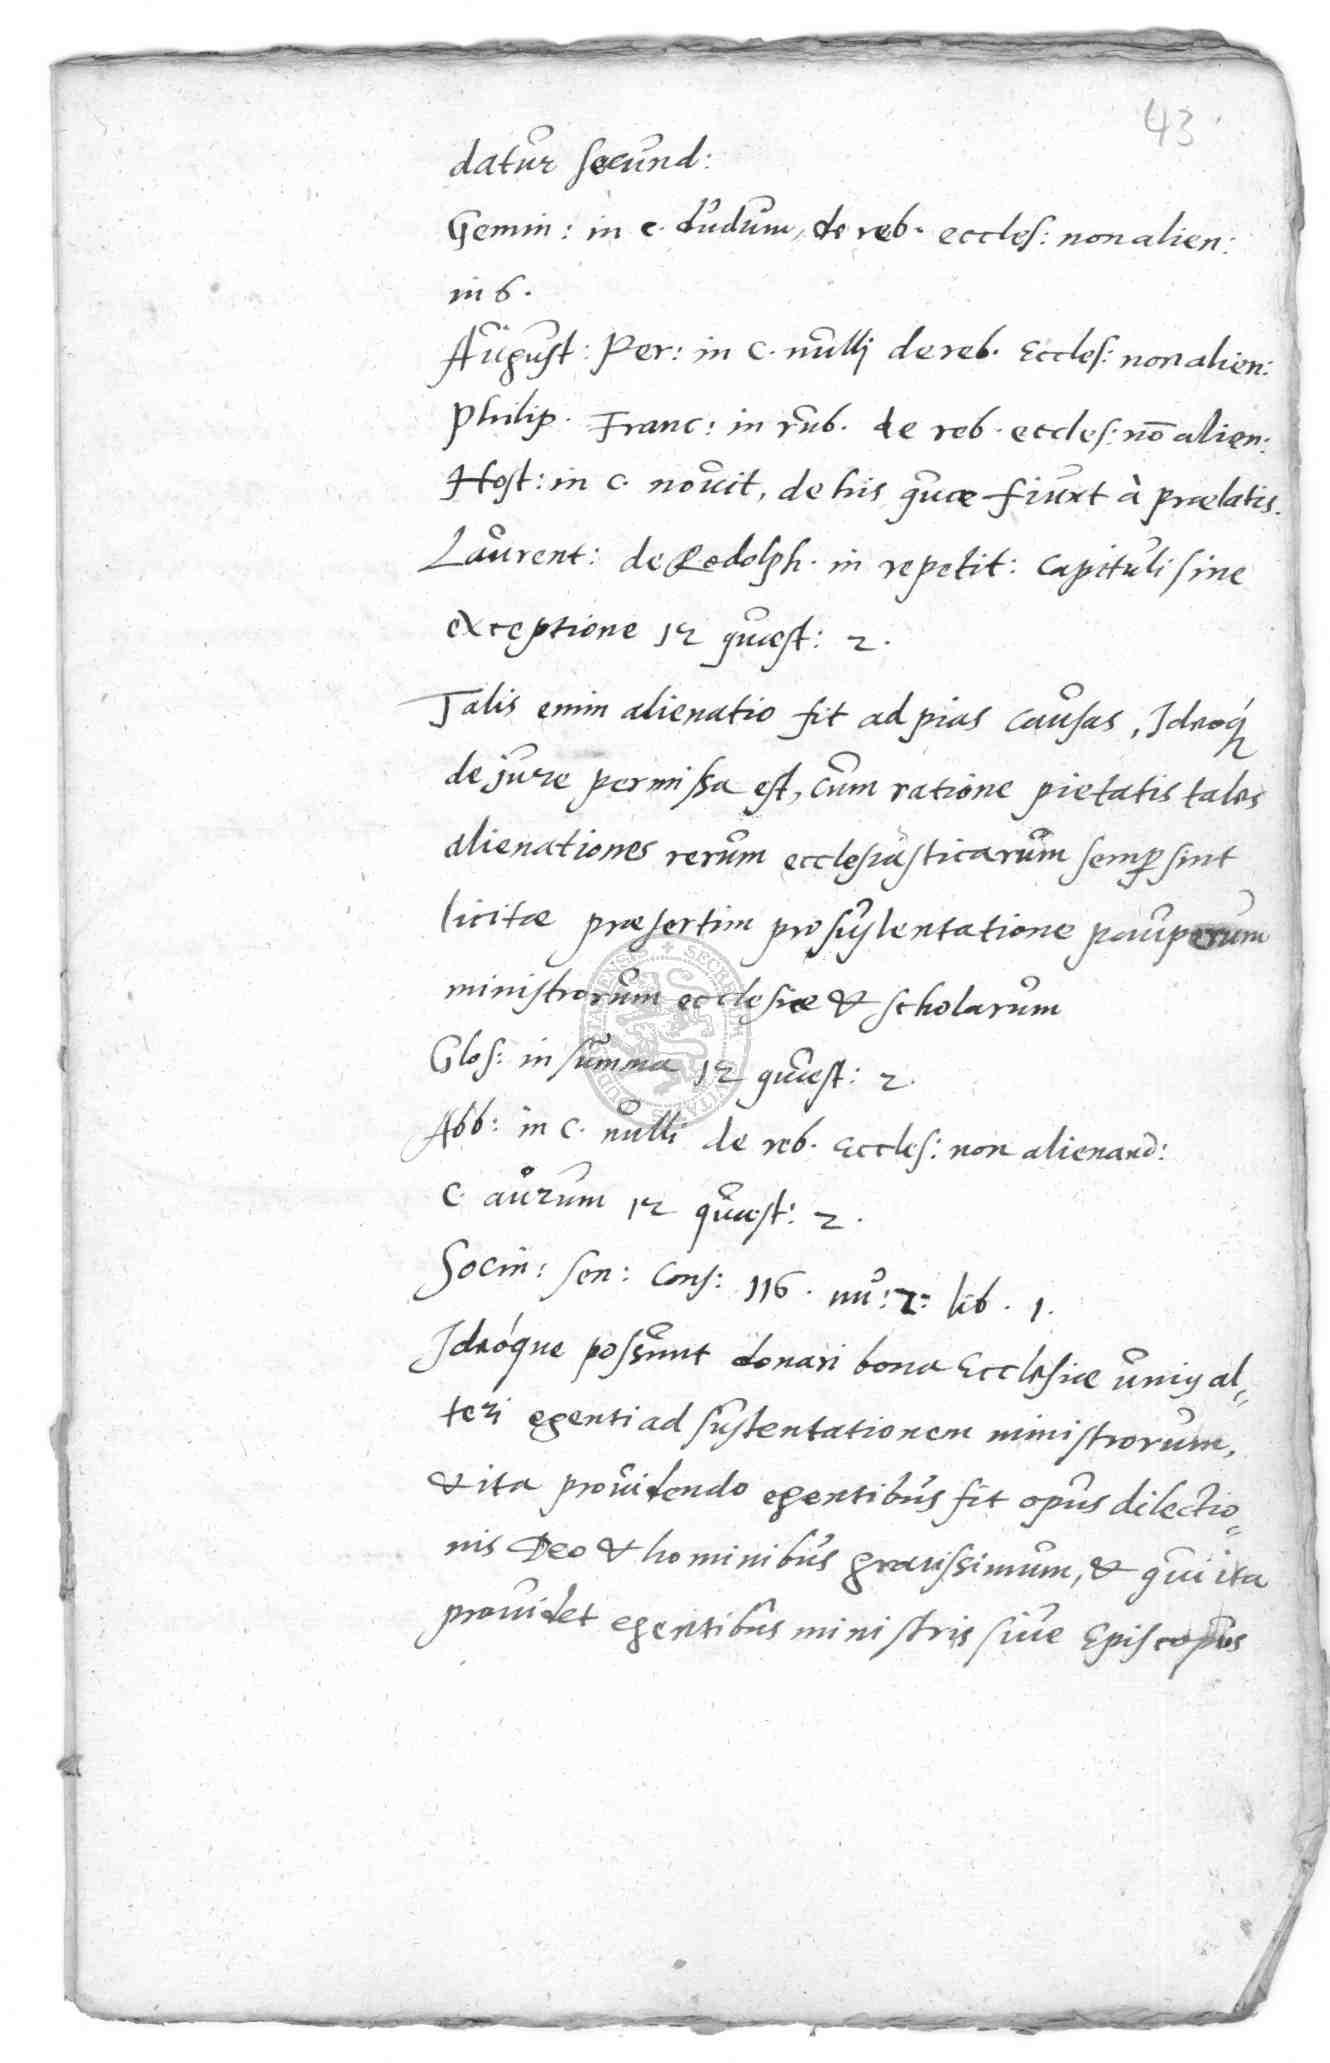 43
datur secund:
Gemin: in c. dudum, de reb. eccles: non alien:
in 6.
August: Per: in c. nulli de reb. Eccles: non alien:
Philip. Franc: in rub. de reb. eccles: nō alien:
Host: in c. novit, de his quae fiunt à praelatis.
Laurent: de Rodolph. in repetit: capituli sine
exceptione 12 quaest: 2.
Talis enim alienatio fit ad pias causas, Ideoq́
de jure permissa est, cum ratione pietatis tales
alienationes rerum ecclesiasticarum semp sint
licitae praesertim pro sustentatione pauperum
ministrorum ecclesiae & scholarum
Glos: in summa 12 quaest: 2.
Abb: in c. nulli de reb. Eccles: non alienand:
C. aurum 12 quaest: 2.
Socin: sen: Cons: 116. nu: 2: lib. 1.
Ideóque possunt donari bona Ecclesiae unius al=
teri egenti ad sustentationem ministrorum,
& ita providendo egentibus fit opus dilectio=
nis Deo & hominibus gratissimum, & qui ita
providet egentibus ministris sive Episcopus